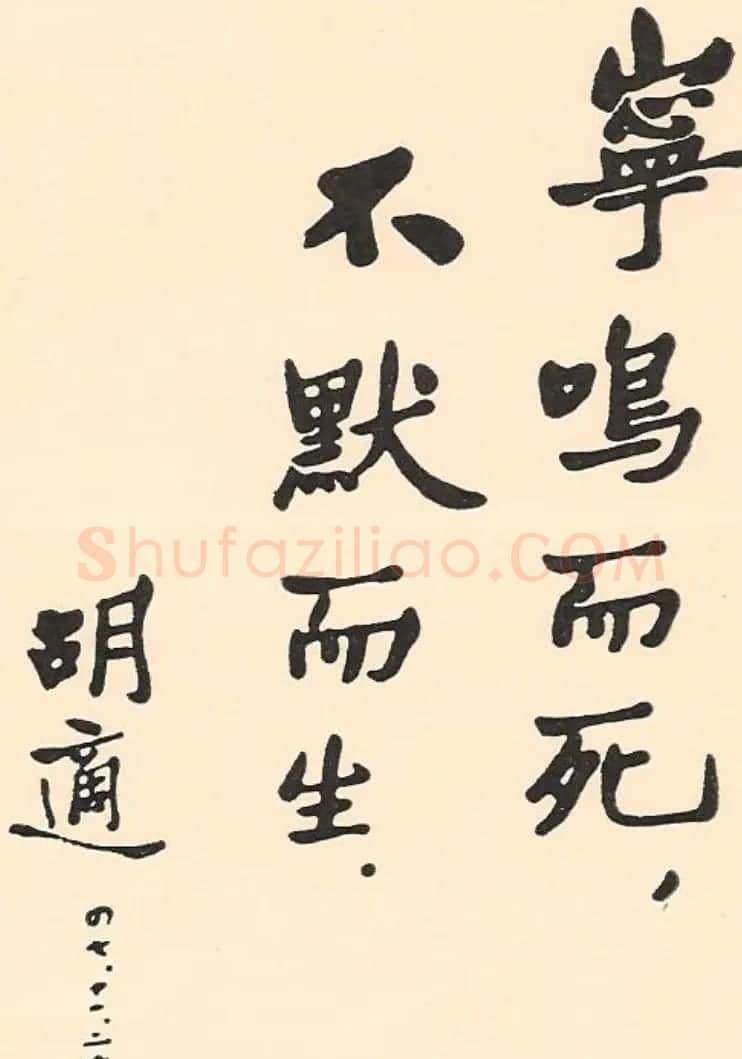 寧鳴而死，
不默而生．
胡適
Shufaziliao.COM